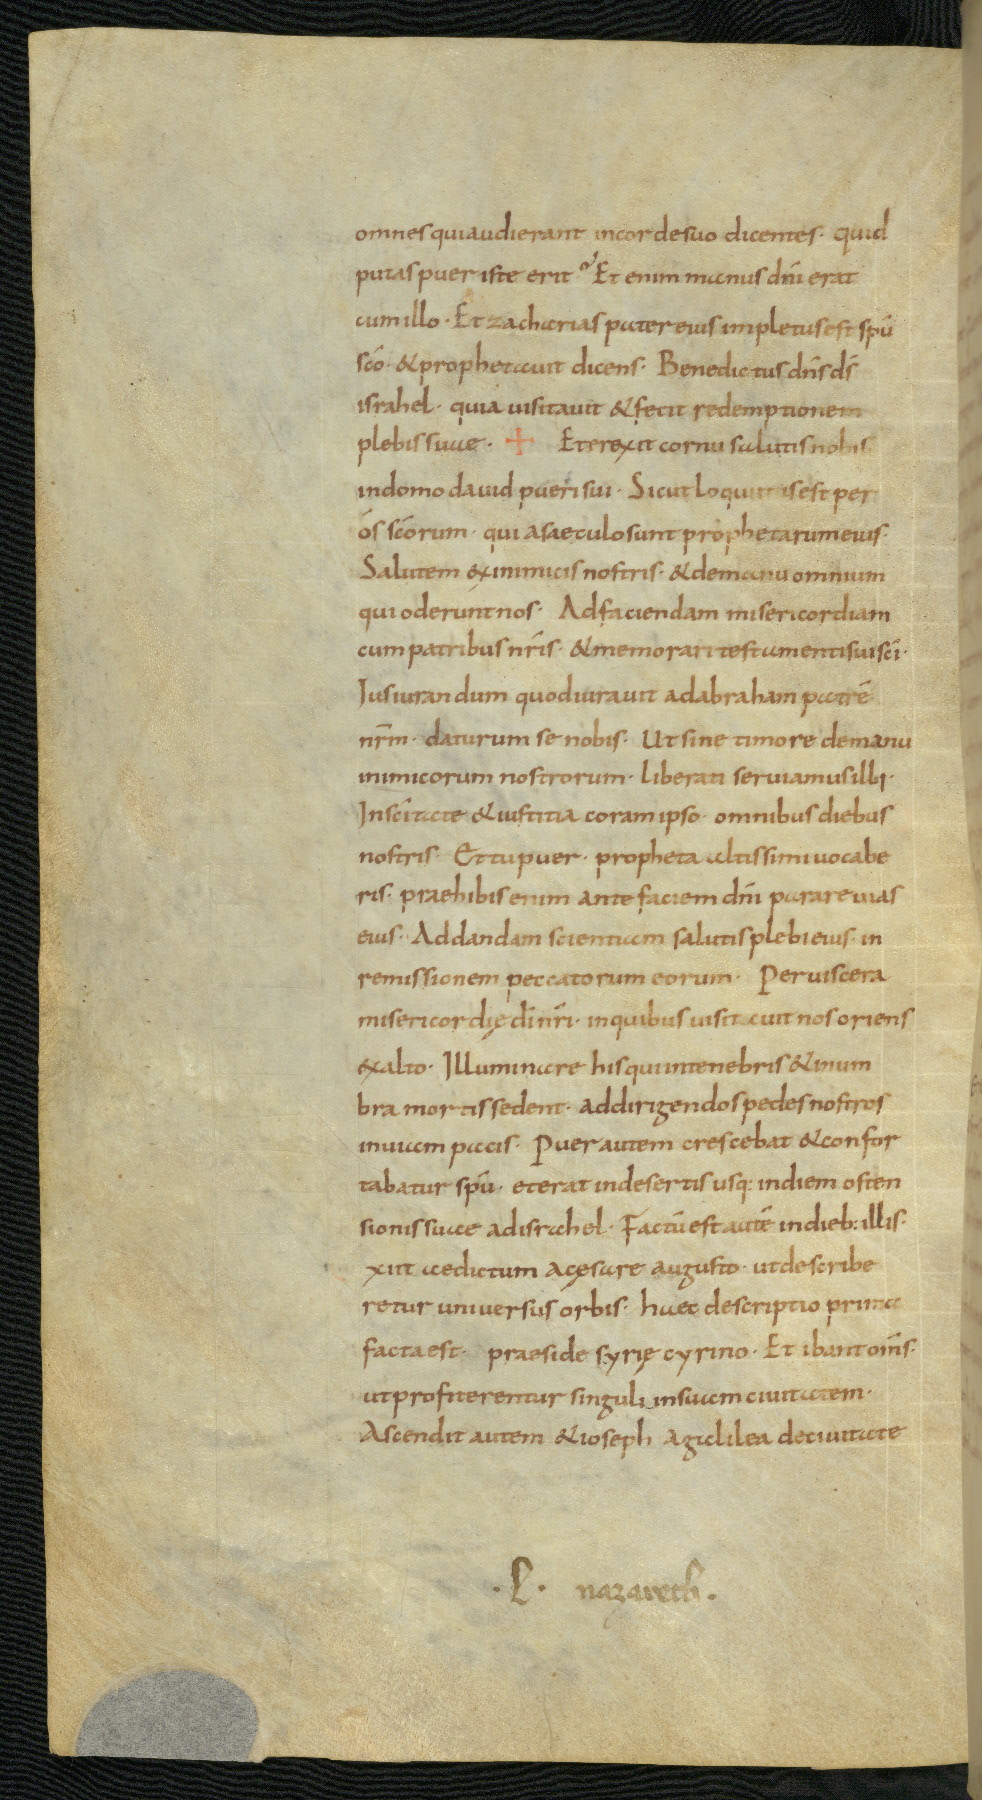 omnes qui audierant in corde suo dicentes · quid
putas puer iste erit Et enim manus dn̄i erat
cum illo · Et zacharias pater eius impletus est spū
scō · & prophetauit dicens · Benedictus dn̄s ds̄
israhel · quia uisitauit & fecit redemptionem
plebis suae · ✢ Et erexit cornu salutis nobis
in domo dauid pueri sui · Sicut loquutus est per
ōs scōrum · qui a saeculo sunt prophetarum eius ·
Salutem ex inimicis nostris · & de manu omnium
qui oderunt nos · Ad faciendam misericordiam
cum patribus nr̄is · & memorari testamenti sui scī ·
Iusiurandum quod iurauit ad abraham patrē
nr̄m · daturum se nobis · Ut sine timore de manu
inimicorum nostrorum · liberati seruiamus illi ·
In scītate & iustitia coram ipso · omnibus diebus
nostris · Et tu puer · propheta altissimi uocabe
ris · praehibis enim ante faciem dn̄i parare uias
eius · Ad dandam scientiam salutis plebi eius · in
remissionem peccatorum eorum · Per uiscera
misericordię dī nr̄i · in quibus uisitauit nos oriens
ex alto · Illuminare his qui in tenebris & in um
bra mortis sedent · ad dirigendos pedes nostros
in uiam pacis · Puer autem crescebat & confor
tabatur spū · et erat in desertis usq: in diem osten
sionis suae ad israhel · Factū est autē in dieb: illis ·
xiit aedictum a cęsare augusto · ut describe
retur uniuersus orbis · haec descriptio prima
facta est · praeside syrię cyrino · Et ibant om̄s ·
ut profiterentur singuli in suam ciuitatem ·
Ascendit autem & ioseph a galilea de ciuitate
· L · nazareth .